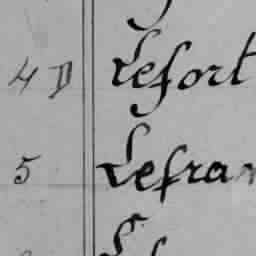 4 D Lefort
5 Lefran